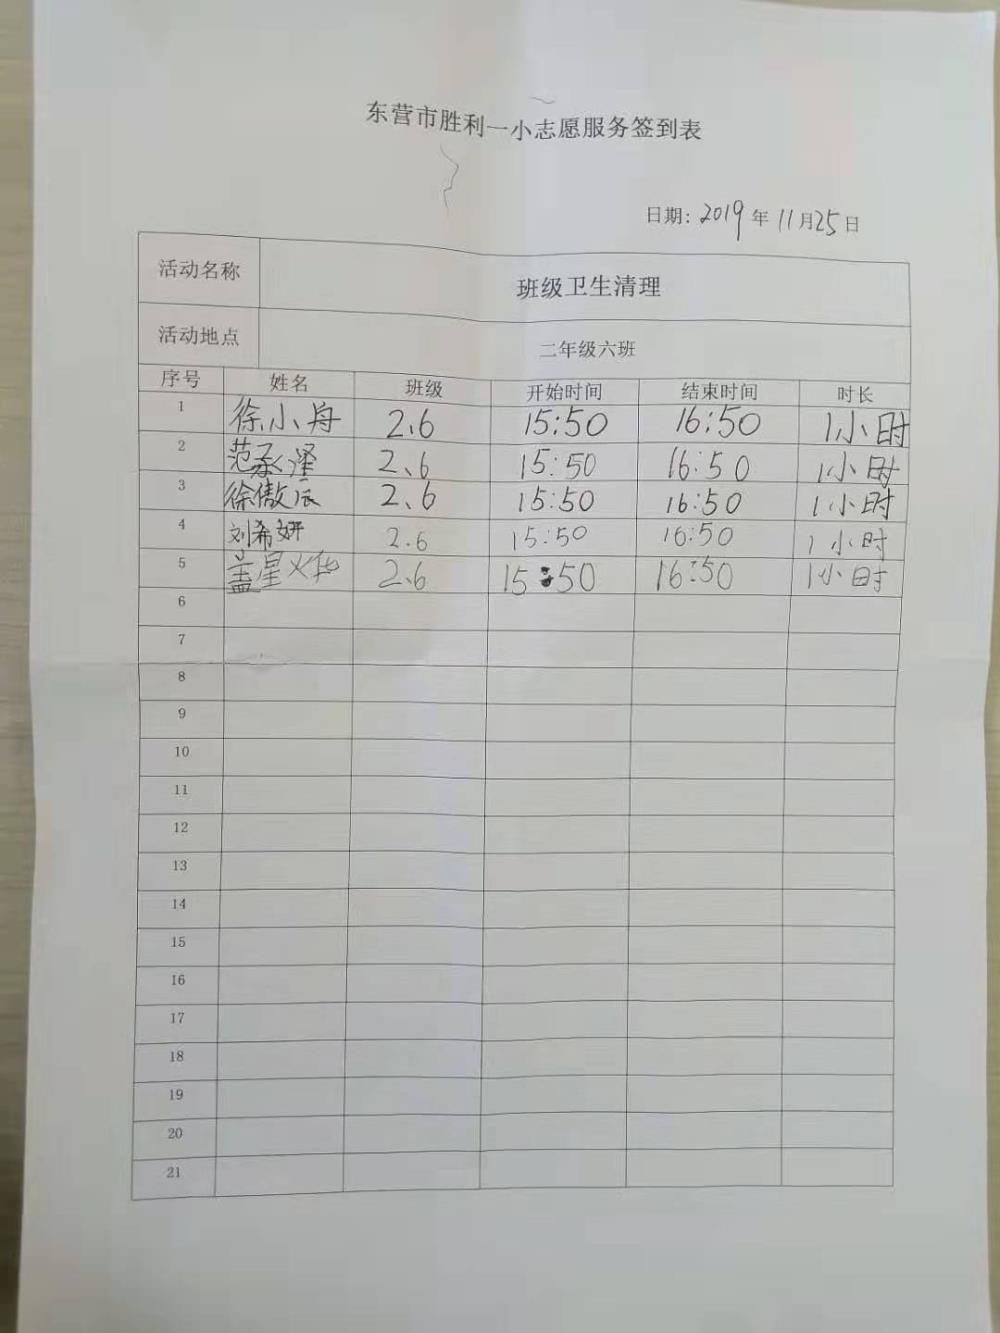 东营市胜利一小志愿服务签到表
日期: 2019 年 11 月 25 日
活动名称 班级卫生清理
活动地点 二年级六班
序号 姓名 班级 开始时间 结束时间 时长
1 徐小舟 2.6 15:50 16:50 1小时
2 范承泽 2、6 15:50 16:50 1小时
3 徐傲辰 2、6 15:50 16:50 1小时
4 刘希妍 2.6 15:50 16:50 1小时
5 盖星烨 2、6 15:50 16:50 1小时
6
7
8
9
10
11
12
13
14
15
16
17
18
19
20
21